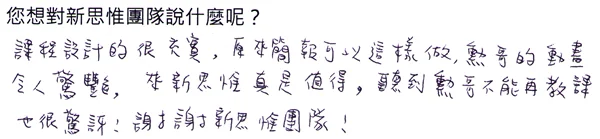 您想對新思惟團隊說什麼呢？
課程設計的很充實，原來簡報可以這樣做，勲哥的動畫
令人驚豔，來新思惟真是值得，聽到勲哥不能再教課
也很驚訝！謝謝新思惟團隊！